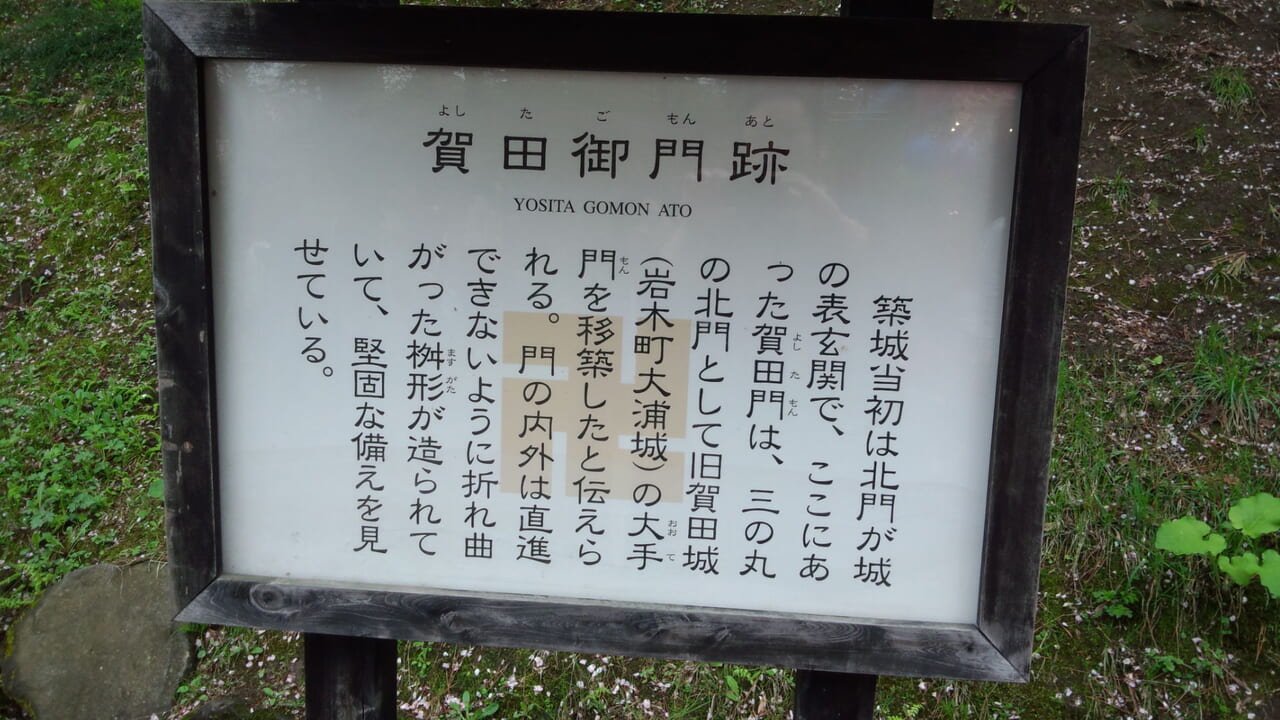 よし た ご もん あと
賀田御門跡
YOSITA GOMON ATO
築城当初は北門が城
の表玄関で、ここにあ
った賀田門は、三の丸
よし た もん
の北門として旧賀田城
(岩木町大浦城)の大手
おお て
門を移築したと伝えら
もん
れる。門の内外は直進
できないように折れ曲
がった桝形が造られて
ます がた
いて、堅固な備えを見
せている。